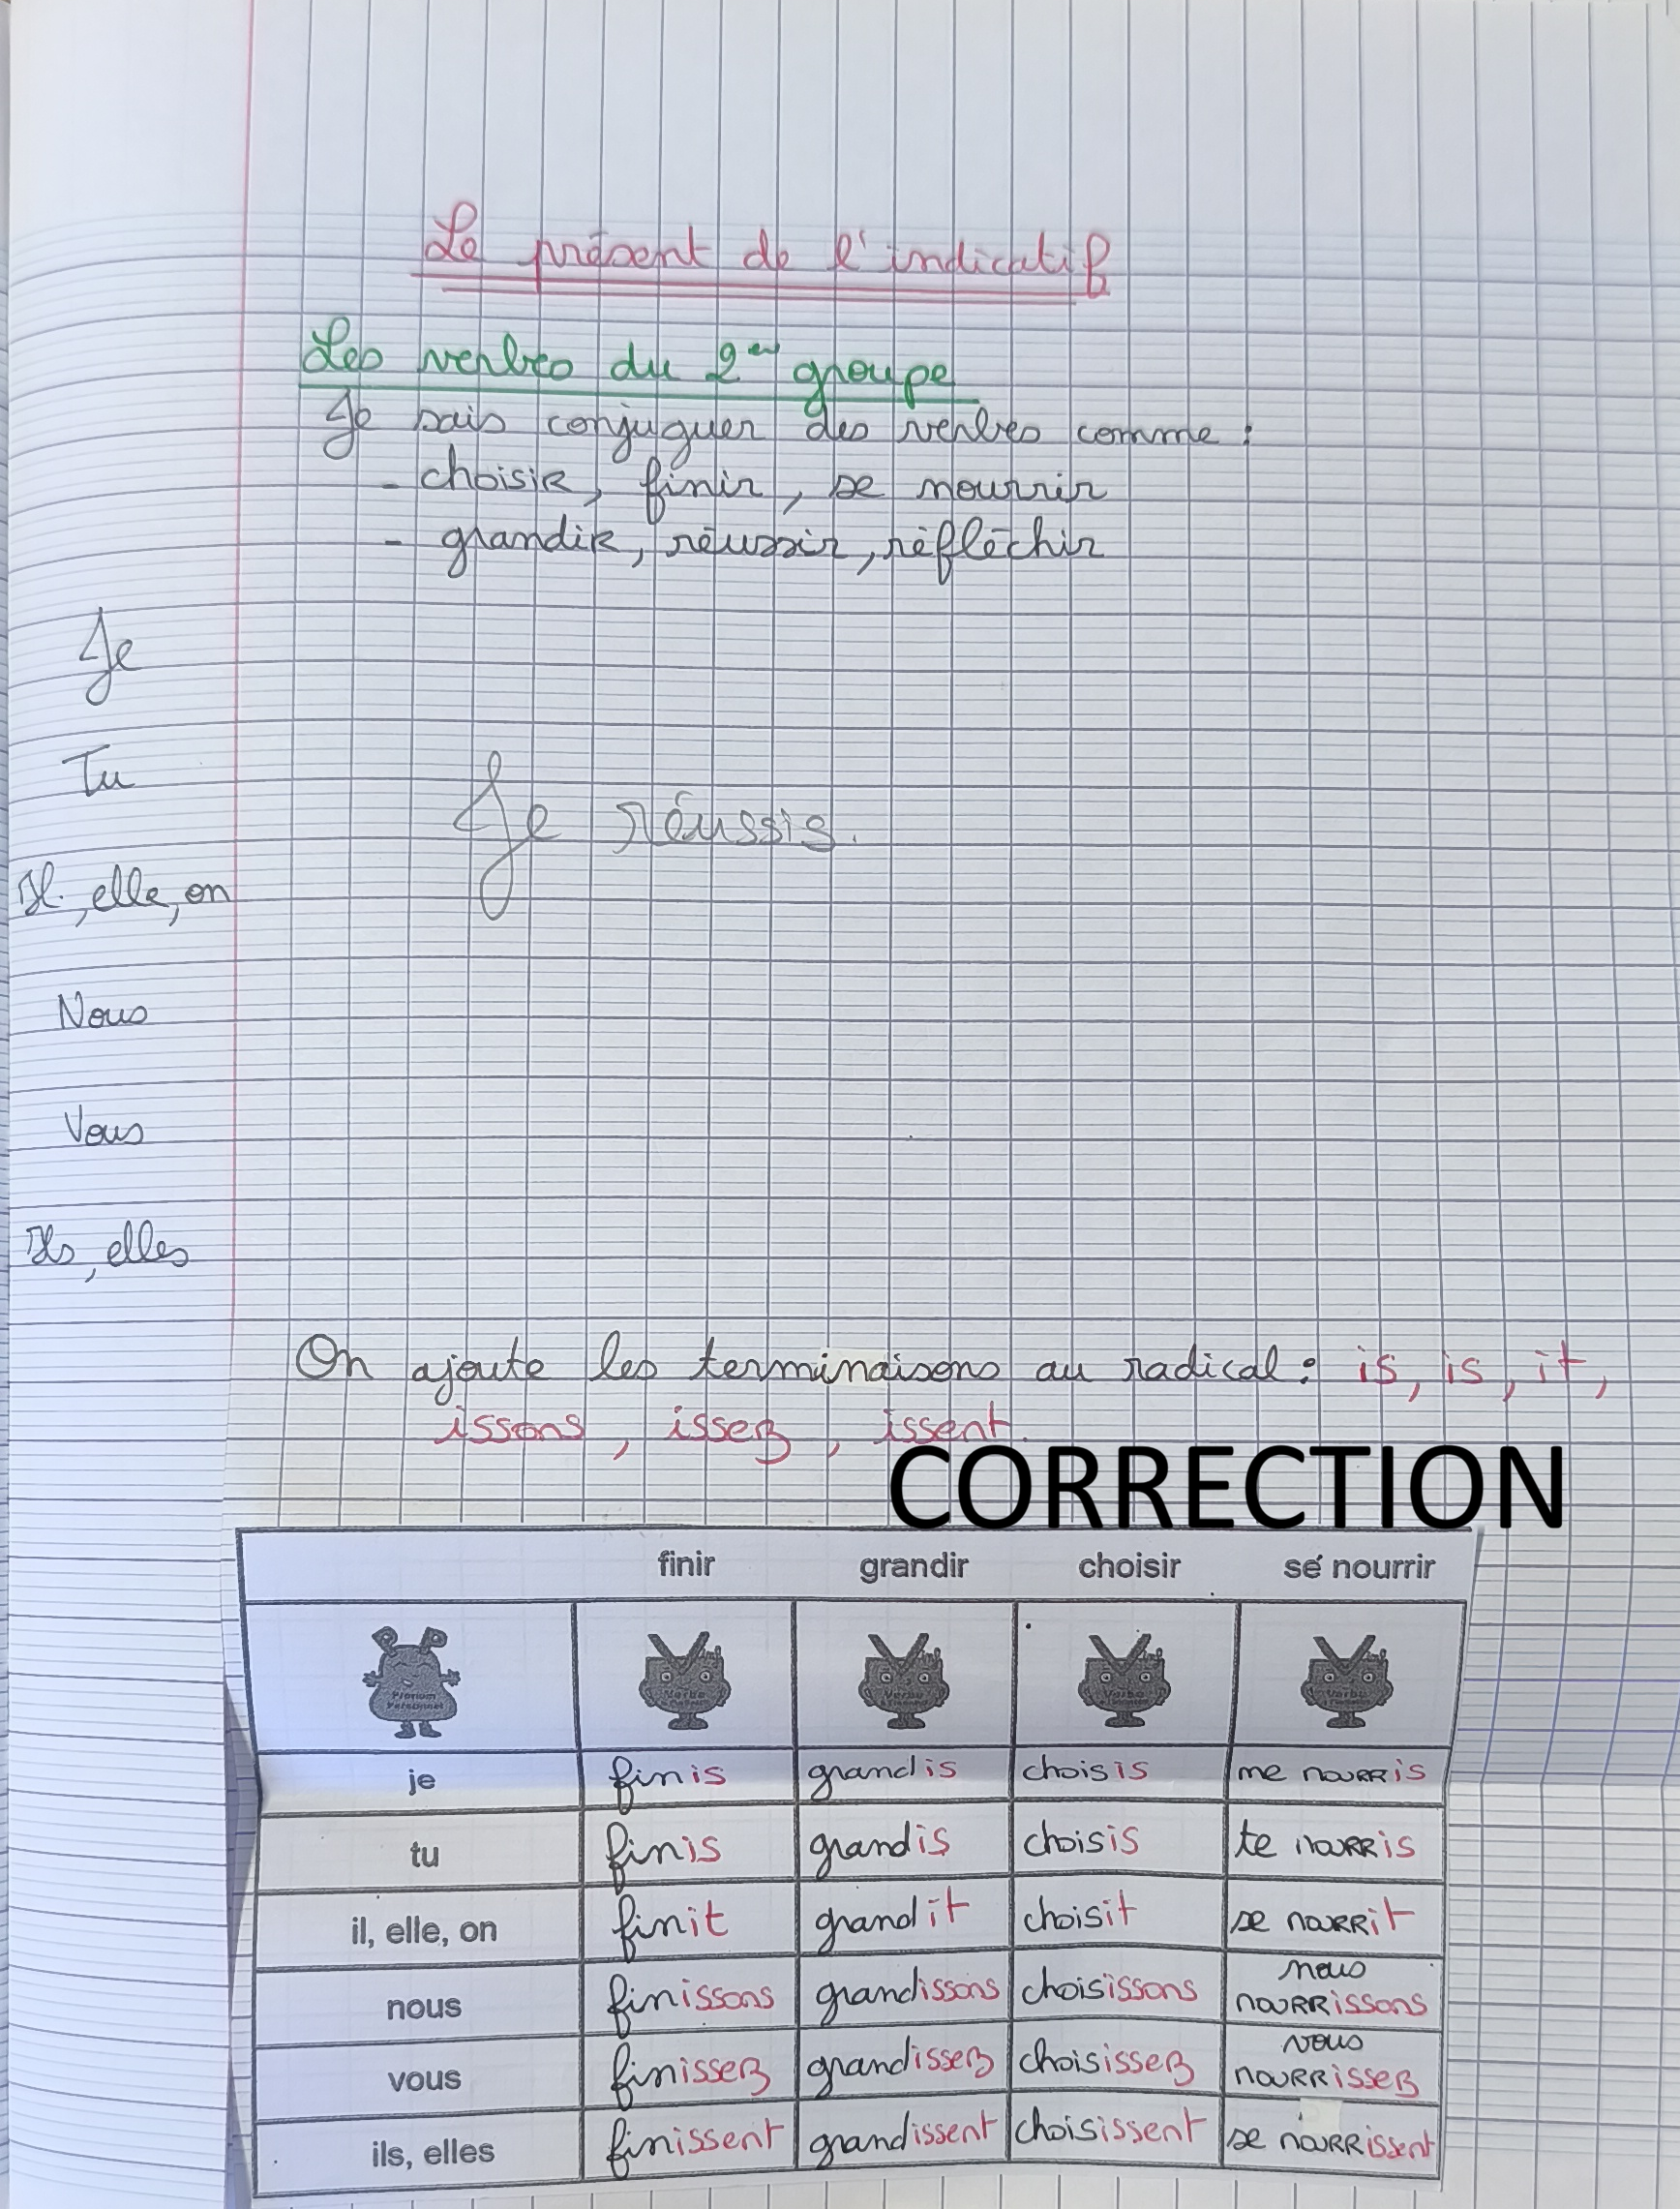 Le présent de l'indicatif
Les verbes du 2er groupe
Je sais conjuguer des verbes comme :
- choisir, finir, se nourrir
- grandir, réussir, réfléchir
Je
Tu
Je réussis.
Il, elle, on
Nous
Vous
Ils, elles
On ajoute les terminaisons au radical : is, is, it,
issons, issez, issent.
CORRECTION
finir grandir choisir se nourrir
Pronom Personnel Verbe Verbe Verbe Verbe
je finis grandis choisis me nourris
tu finis grandis choisis te nourris
il, elle, on finit grandit choisit se nourrit
nous finissons grandissons choisissons nous nourrissons
vous finissez grandissez choisissez vous nourrissez
ils, elles finissent grandissent choisissent se nourrissent